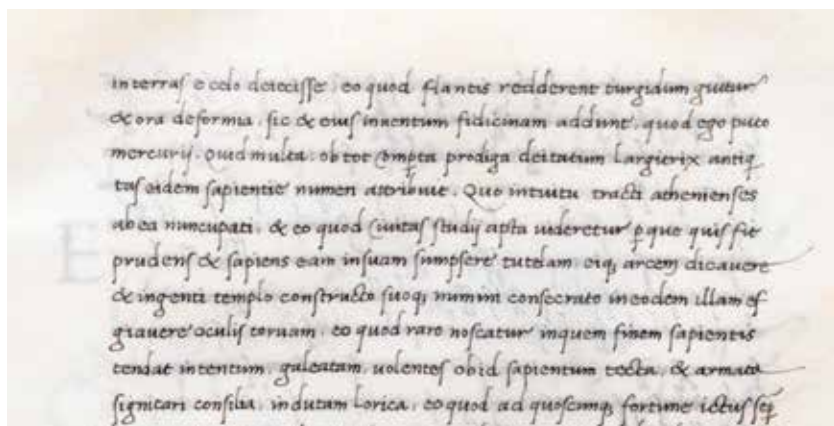 in terras e celo deiecisse. eo quod flantis redderent turgidum guttur
& ora deformia. sic & eius inuentum fidicinam addunt. quod ego puto
mercurij. Quid multa. ob tot compta prodiga deitatum largitrix antiq
tas eidem sapientie numen attribuit. Quo intuitu tracti athenienses
ab ea nuncupati. & eo quod Ciuitas studij apta uideretur p que quis fit
prudens & sapiens eam in suam sumpsere tutelam eiq; arcem dicauere
& ingenti templo constructo suoq; numini consecrato in eodem illam ef
giauere oculis toruam. eo quod raro noscatur in quem finem sapientis
tendat intentum. galeatam. uolentes ob id sapientum tecta. & armata
signitari consilia. indutam lorica. eo quod ad quoscunq; fortune ictus sep